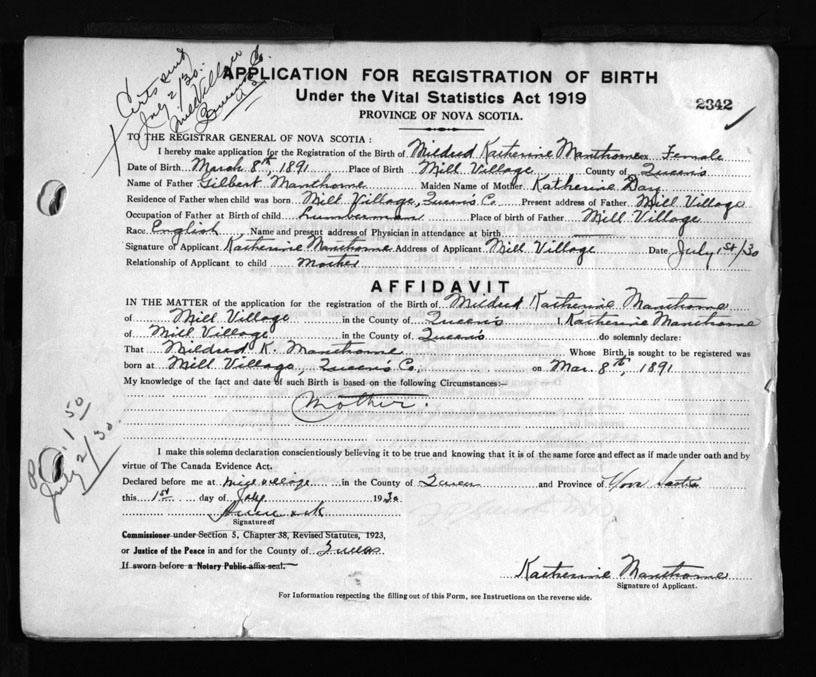 Certs sent
July 2/30.
Mill Village
Queens Co.
APPLICATION FOR REGISTRATION OF BIRTH
Under the Vital Statistics Act 1919
2342
PROVINCE OF NOVA SCOTIA.
TO THE REGISTRAR GENERAL OF NOVA SCOTIA:
I hereby make application for the Registration of the Birth of Mildred Katherine Manthorne Female
Date of Birth March 8th, 1891 Place of Birth Mill Village County of Queen's
Name of Father Gilbert Manthorne Maiden Name of Mother Katherine
Residence of Father when child was born Mill Village, Queen's Co. Present address of Father Mill Village
Occupation of Father at Birth of child Lumberman Place of birth of Father Mill Village
Race English Name and present address of Physician in attendance at birth
Signature of Applicant Katherine Manthorne Address of Applicant Mill Village Date July 1st/30
Relationship of Applicant to child Mother
AFFIDAVIT
IN THE MATTER of the application for the registration of the Birth of Mildred Katherine Manthorne
of Mill Village in the County of Queen's I, Katherine Manthorne
of Mill Village in the County of Queen's do solemnly declare:
That Mildred K. Manthorne Whose Birth is sought to be registered was
born at Mill Village, Queen's Co. on Mar. 8th, 1891
My knowledge of the fact and date of such Birth is based on the following Circumstances:—
Mother.
1 50
July 2/30.
I make this solemn declaration conscientiously believing it to be true and knowing that it is of the same force and effect as if made under oath and by
virtue of The Canada Evidence Act.
Declared before me at Mill Village in the County of Queens and Province of Nova Scotia
this 1st day of July 1930
Signature of
Commissioner under Section 5, Chapter 38, Revised Statutes, 1923,
or Justice of the Peace in and for the County of Queens
If sworn before a Notary Public affix seal.
Katherine Manthorne
Signature of Applicant.
For Information respecting the filling out of this Form, see Instructions on the reverse side.